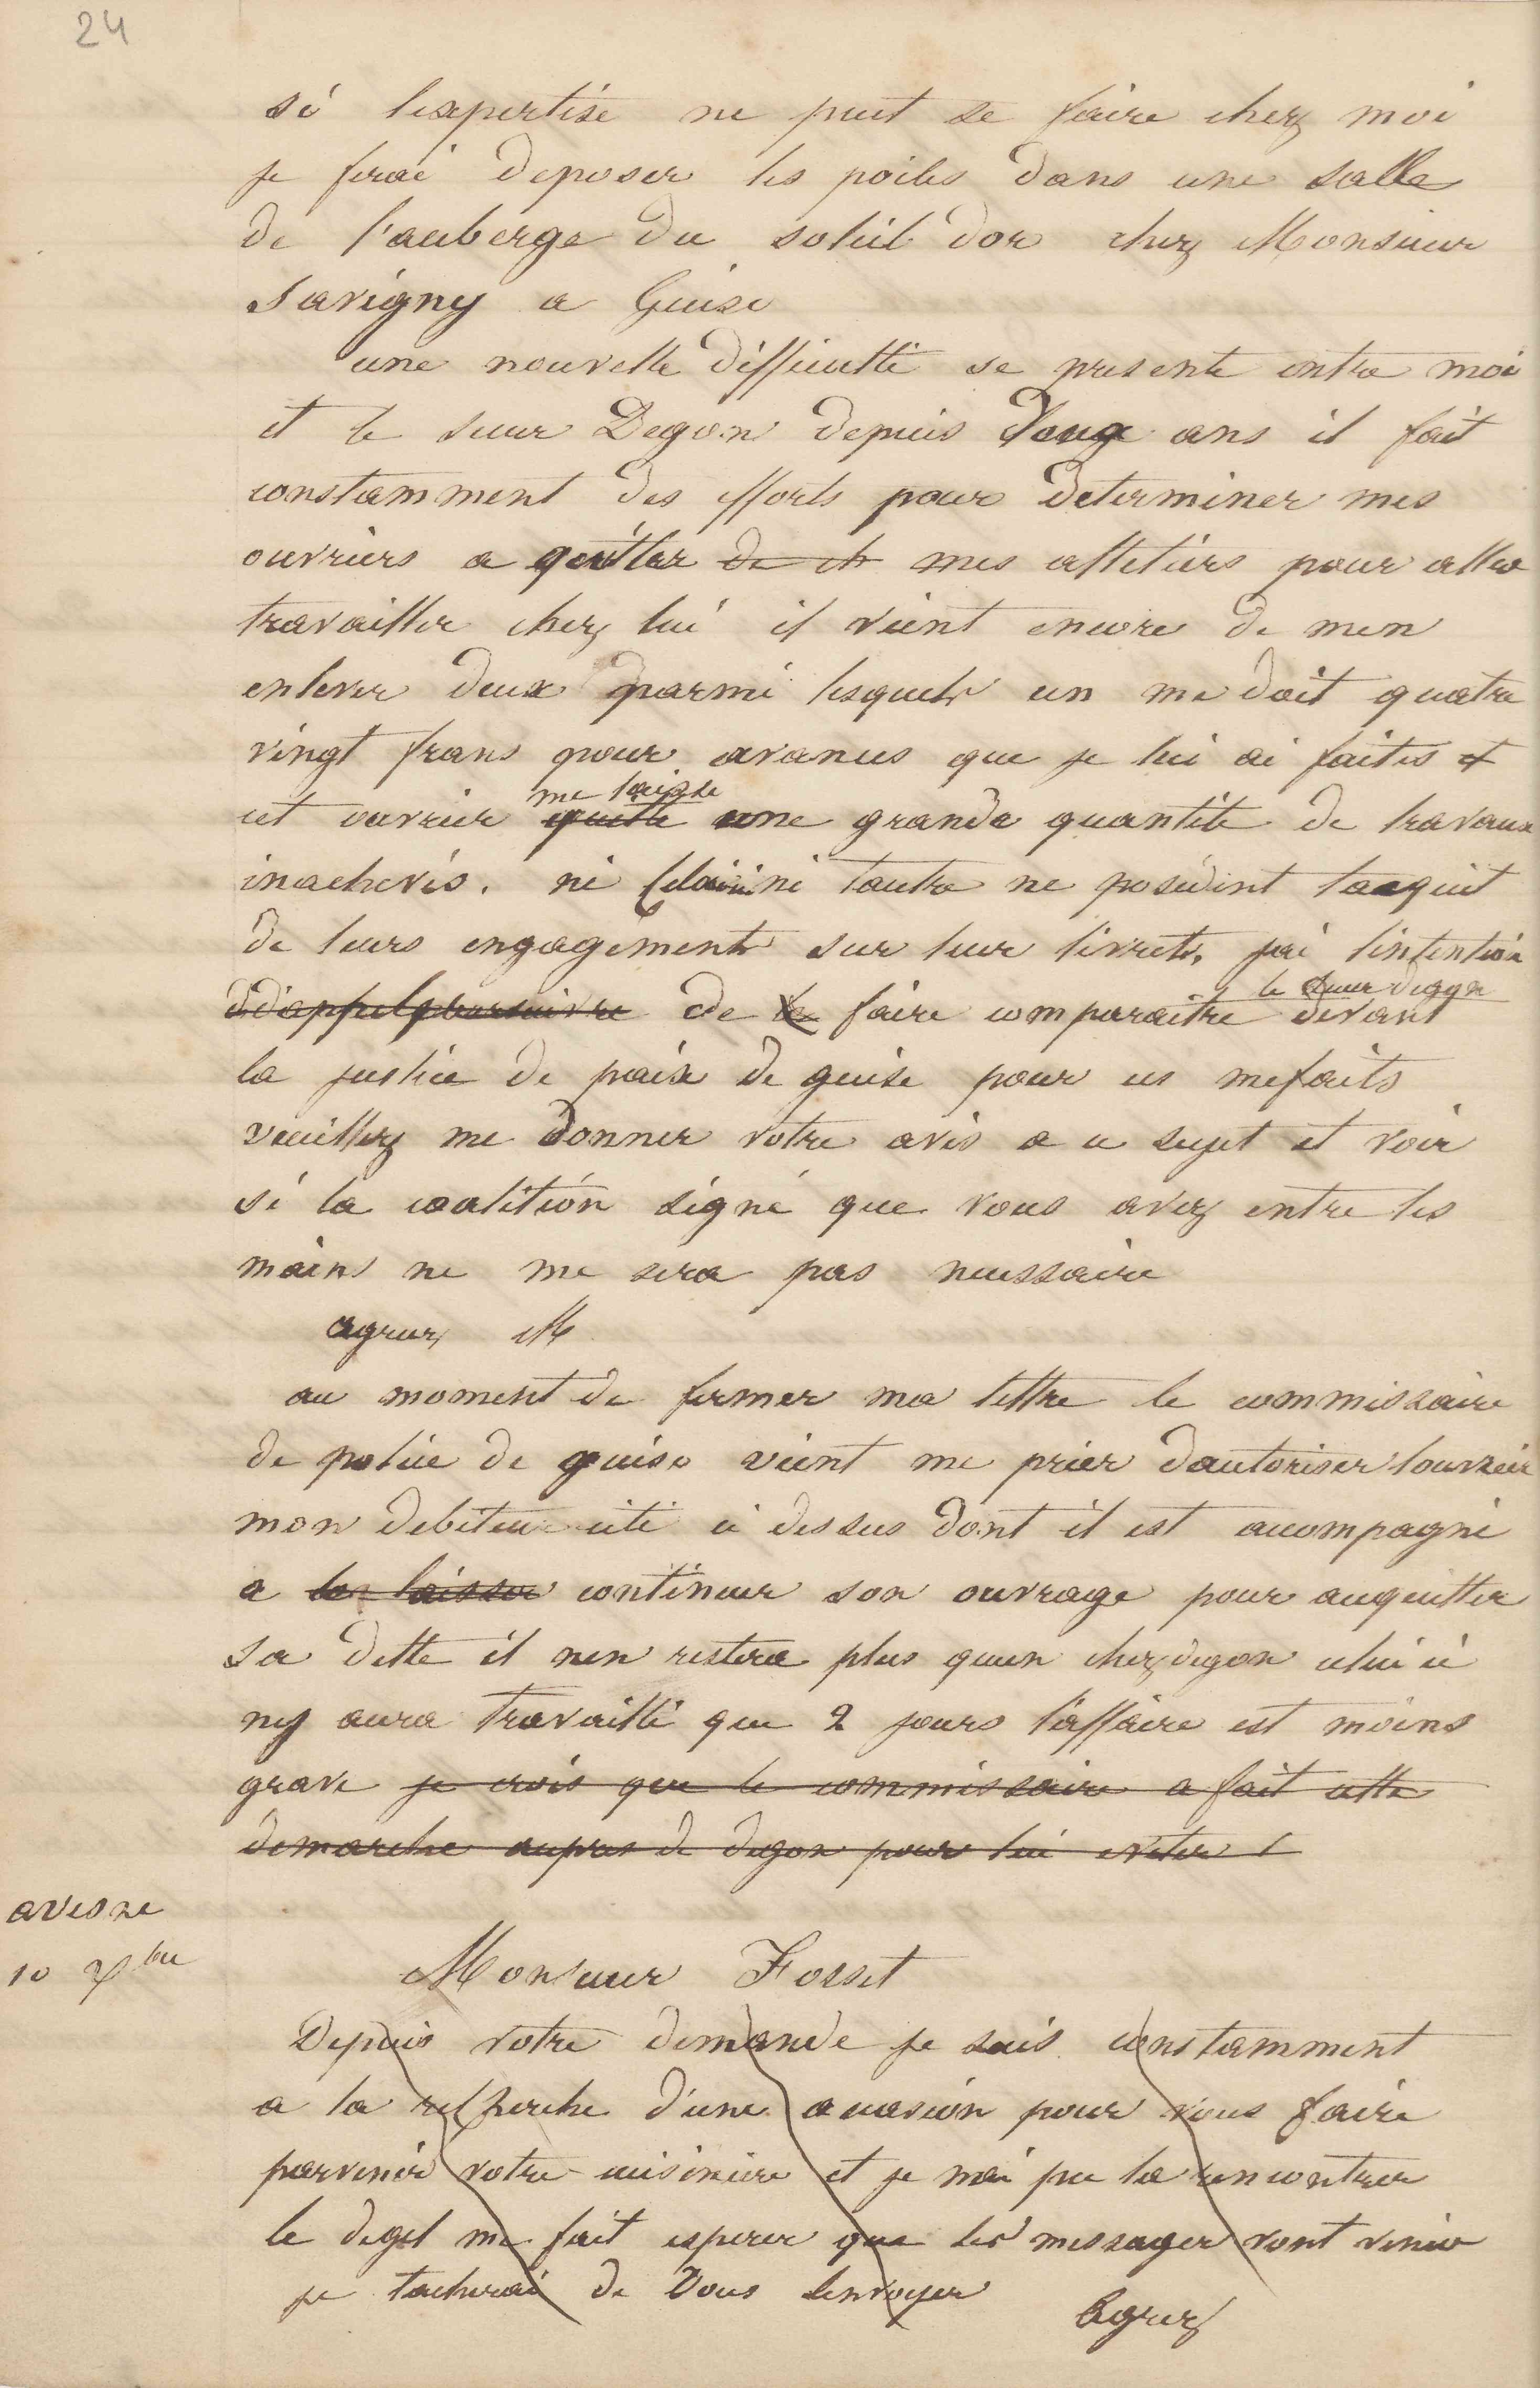 24
si lexpertise ne peut se faire chez moi
je ferai deposer les poiles dans une salle
de l'auberge du soleil dor chez Monsieur
Savigny a Guise
une nouvelle difficulté se presente entre moi
et le sieur Degon depuis deux ans il fait
constamment des efforts pour determiner mes
ouvriers a quitter de ch mes atteliers pour aller
travailler chez lui il vient encore de men
enlever deux parmi lesquels un me doit quatre
vingt frans pour avances que je lui ai faites et
me laisse
cet ouvrier quitte une grande quantité de travaux
inachevés. ni celui ni lautre ne posèdent lacquit
de leurs engagements sur leur livrets, jai lintention
le sieur degon
de faire comparaitre devant
la justice de paix de guise pour ces mefaits
veuillez me donner votre avis a ce sujet et voir
si la coalition signé que vous avez entre les
mains ne me sera pas necessaire
agreez M
au moment de fermer ma lettre le commissaire
de police de guise vient me prier dautoriser louvrier
mon debiteur cité ci dessus dont il est acompagné
a le laisser continuer son ouvrage pour acquitter
sa dette il nen restera plus quun chez degon celui ci
ny aura travaillé que 2 jours l'affaire est moins
grave je crois que le commissaire a fait cette
demarche aupres de degon pour lui eviter l
avesne
10 xbre
Monsieur Fosset
Depuis votre demande je suis constamment
a la recherche d'une ocasion pour vous faire
parvenir votre cuisiniere et je nai pu la rencontrer
le degel me fait esperer que les messager vont venir
je tacherai de vous lenvoyer
Agreez